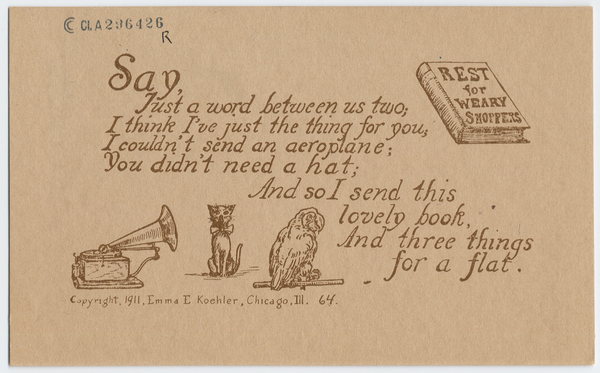 © Cl.A296426
R
REST
for
WEARY
SHOPPERS
Say,
Just a word between us two;
I think I've just the thing for you,
I couldn't send an aeroplane;
You didn't need a hat;
And so I send this
lovely book,
And three things
for a flat.
Copyright, 1911, Emma E Koehler, Chicago, Ill. 64.